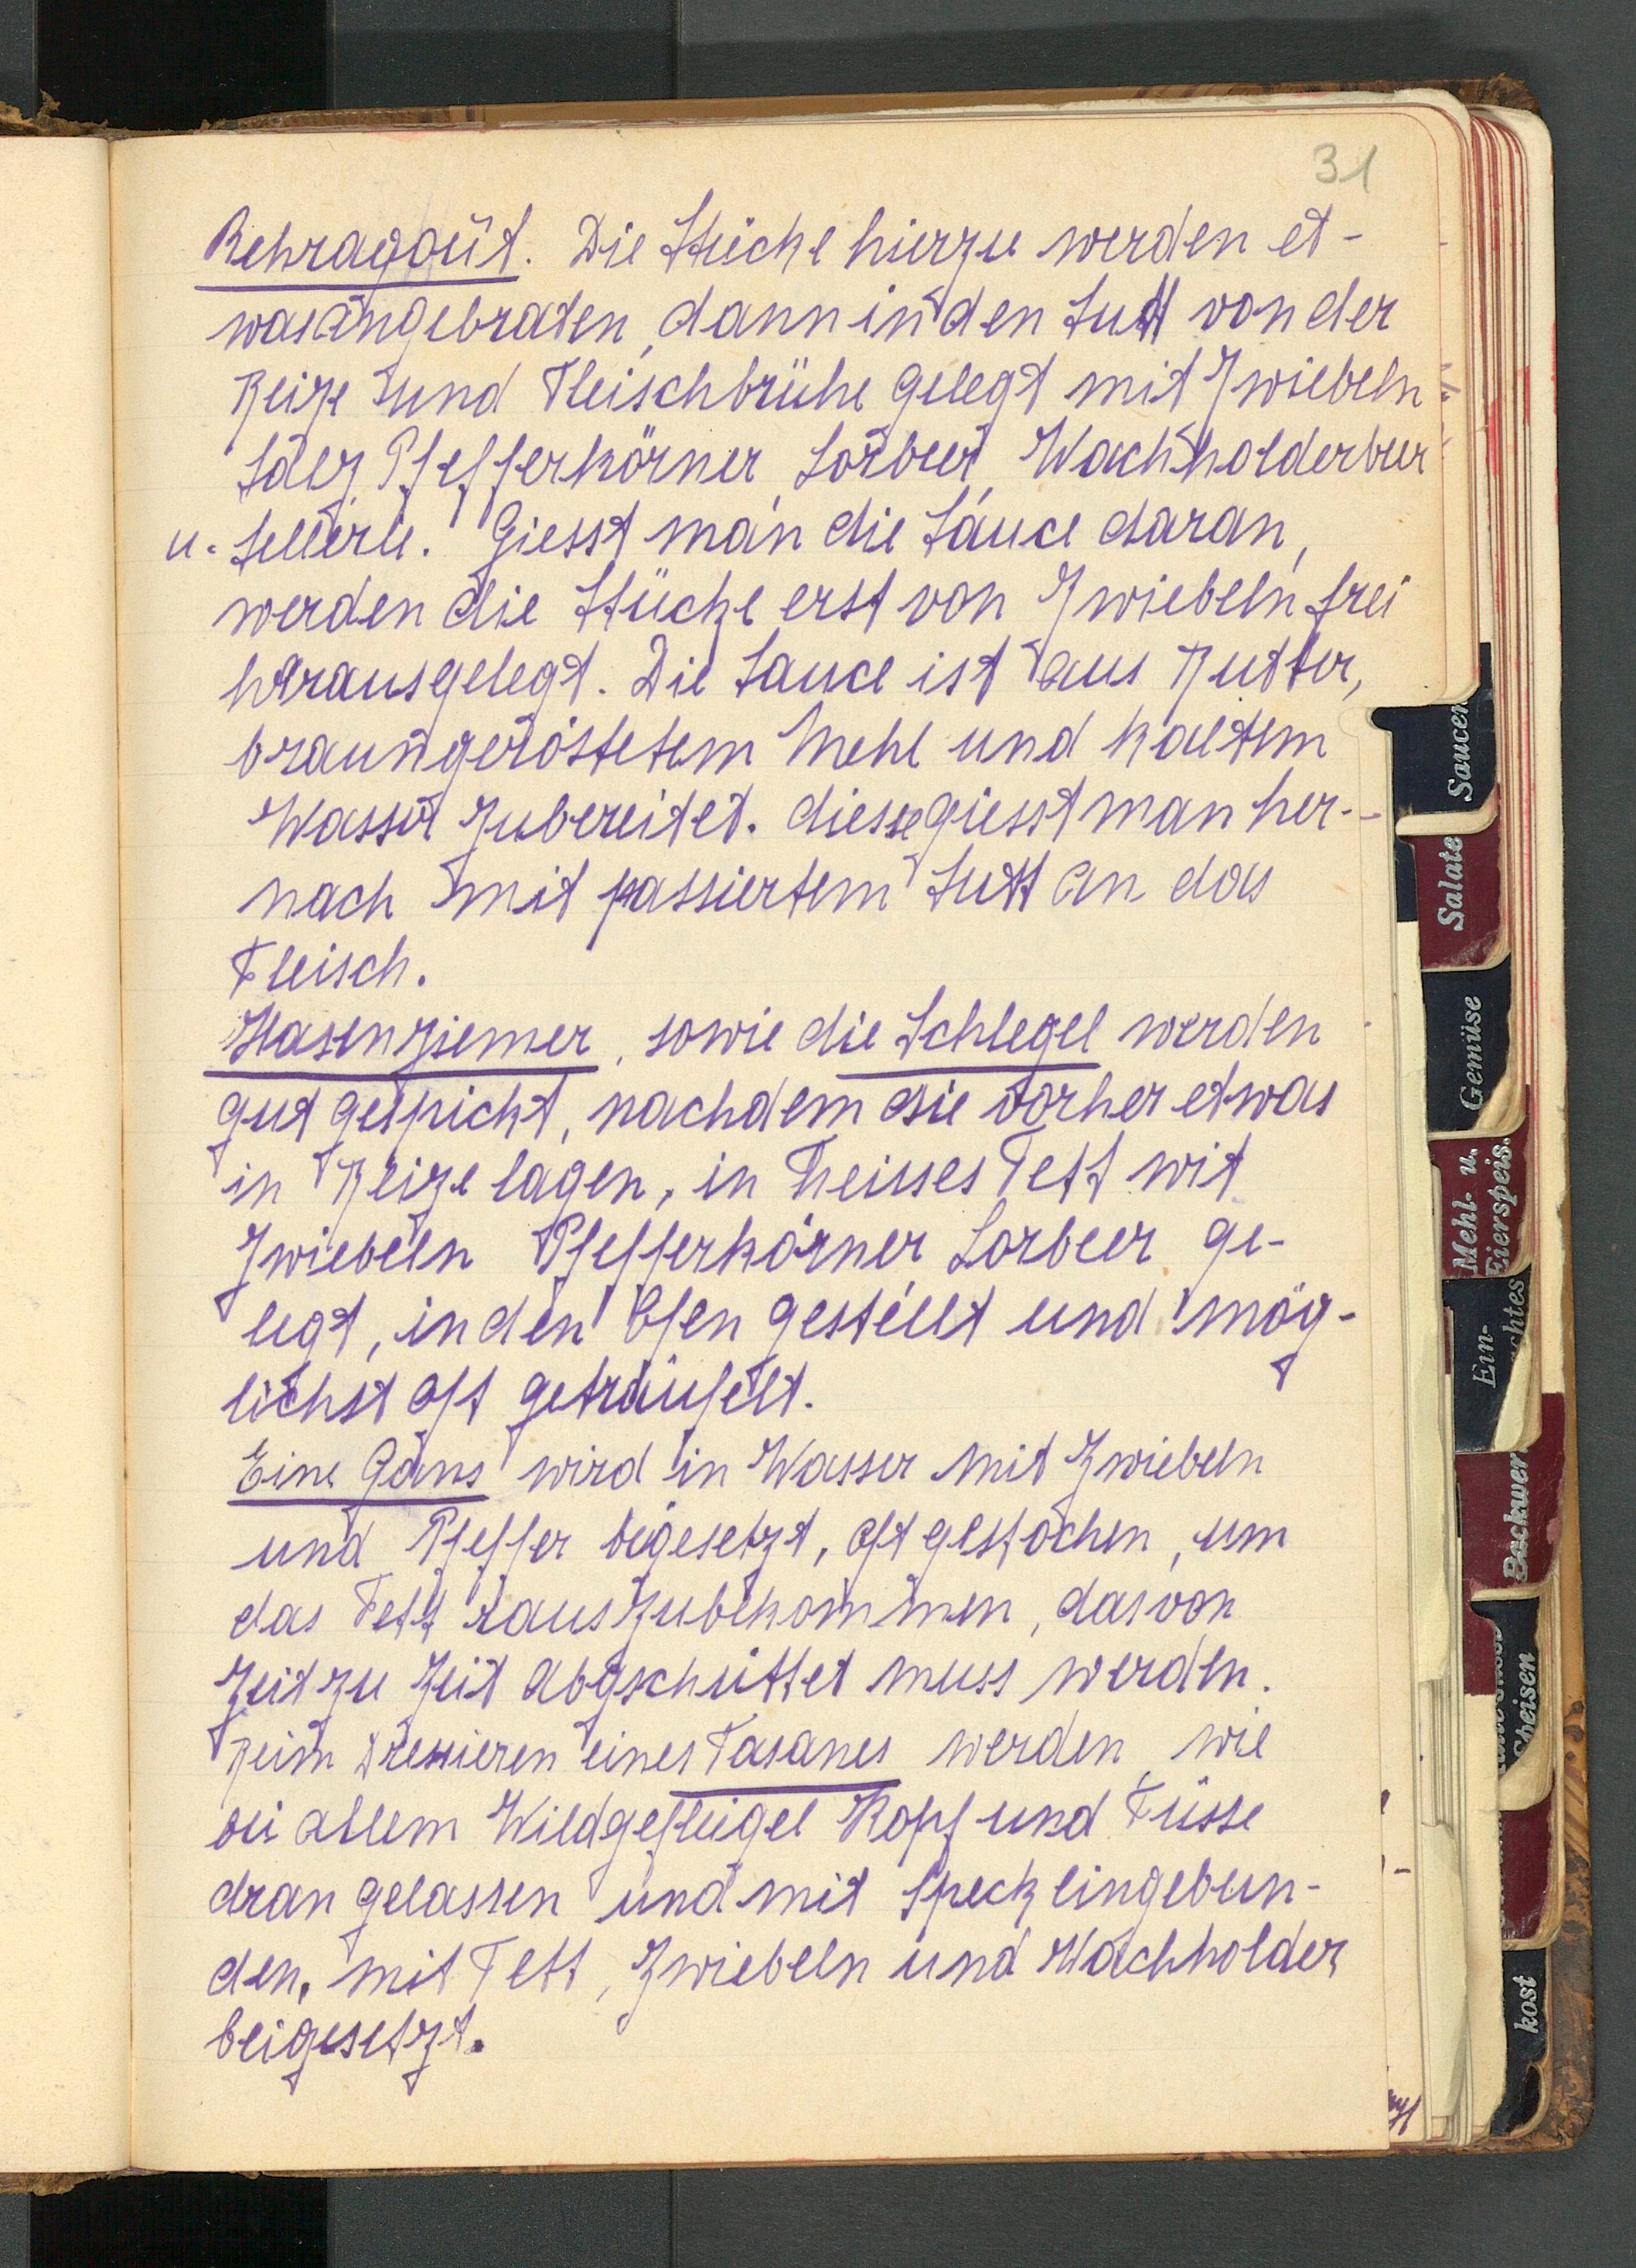 31
Rehragoût. Die Stücke hierzu werden et-
was angebraten, dann in den Sudt von der
Beize und Fleischbrühe gelegt mit Zwiebeln
Salz, Pfefferkörner, Lorbeer, Wachholderbeer
u. Sellerie. Giesst man die Sauce daran,
werden die Stücke erst von Zwiebeln frei
herausgelegt. Die Sauce ist aus Butter,
braungeröstetem Mehl und kaltem
Wasser zubereitet. diese giesst man her-
nach mit passiertem Sutt an das
Fleisch.
Hasenziemer, sowie die Schlegel werden
gut gespickt, nachdem sie vorher etwas
in Beize lagen, in heisses Fett mit
Zwiebeln Pfefferkörner Lorbeer ge-
legt, in den Ofen gestellt und mög-
lichst oft geträufelt.
Eine Gans wird in Wasser mit Zwiebeln
und Pfeffer beigesetzt, oft gestochen, um
das Fett rauszubekommen, das von
Zeit zu Zeit abgschüttet muss werden.
Beim Dressieren eines Fasanes werden, wie
bei allem Wildgeflügel Kopf und Füsse
dran gelassen und mit Speck eingebun-
den, mit Fett, Zwiebeln und Wachholder
beigesetzt.
Saucen
Salate
Gemüse
Mehl- u.
Eierspeis.
Ein-
chtes
Backwer
Speisen
kost